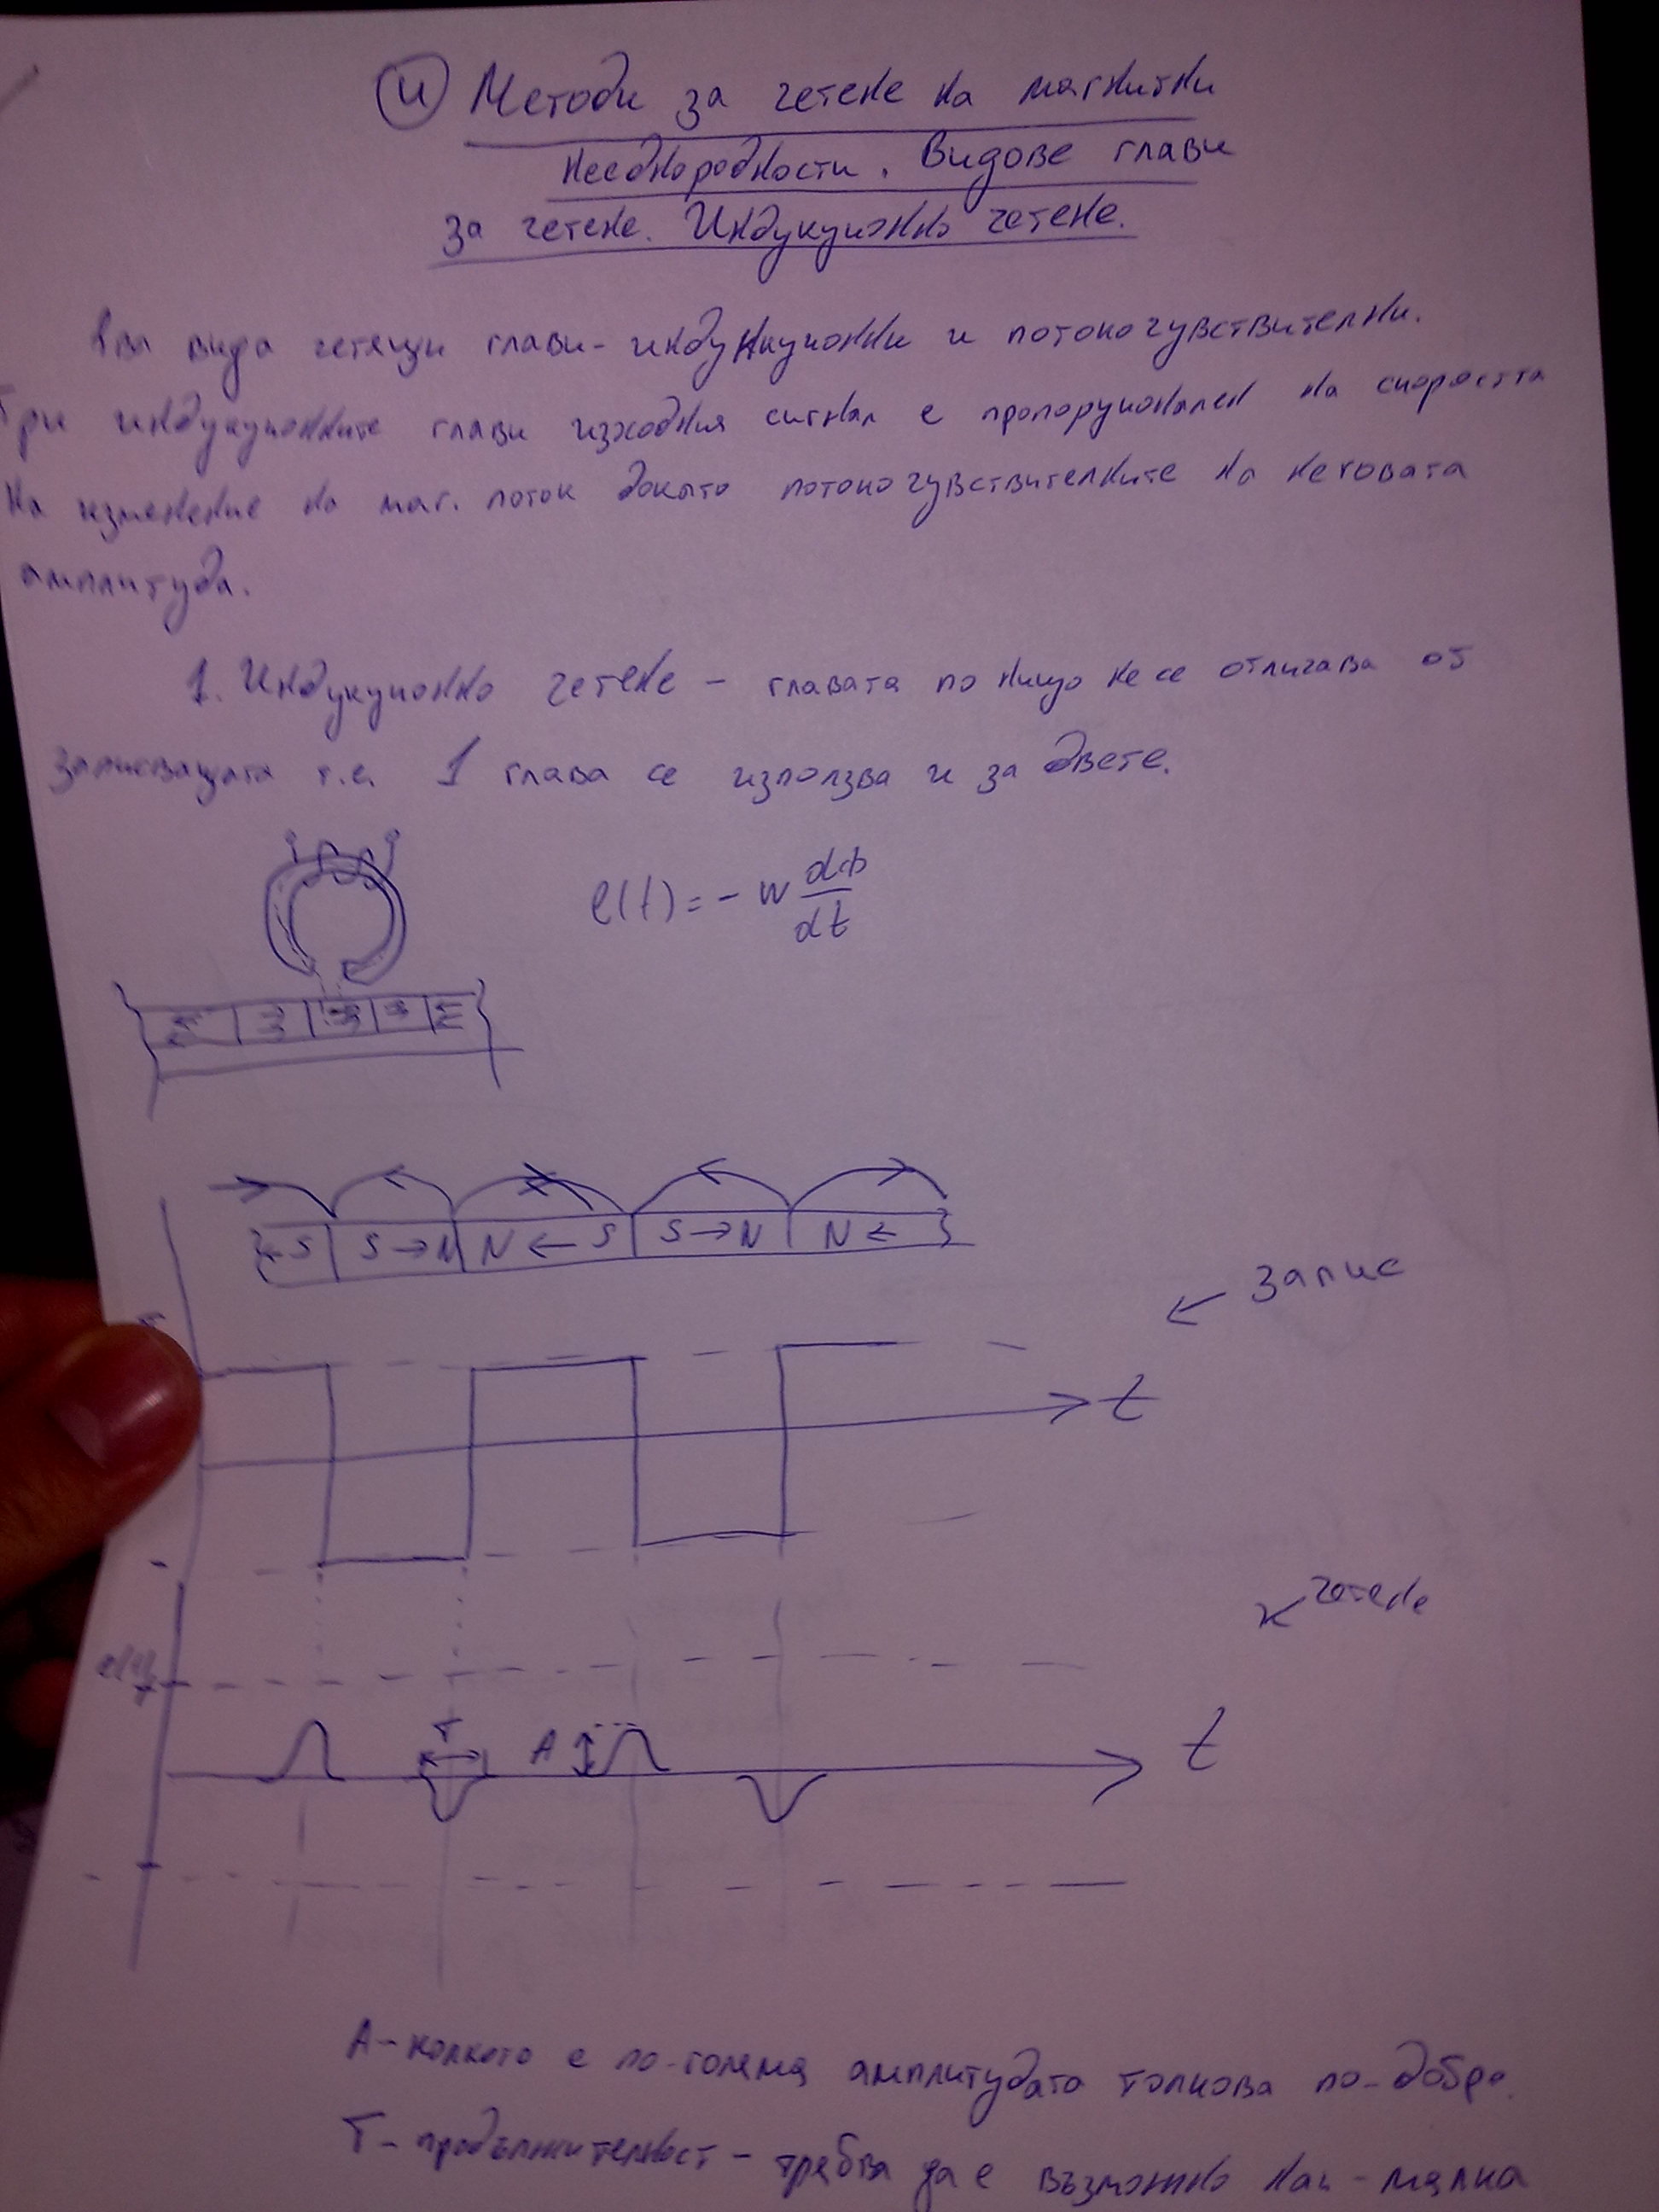 (4) Методи за четене на магнитни
нееднородности. Видове глави
за четене. Индукционно четене.
Два вида четящи глави - индукционни и потокочувствителни.
При индукционните глави изходния сигнал е пропорционален на скоростта
на изменение на маг. поток докато потокочувствителните на неговата
амплитуда.
1. Индукционно четене - главата по нищо не се отличава от
записващата т.е. 1 глава се използва и за двете.
e(t) = - w dФ/dt
← S | S → N | N ← S | S → N | N ←
← Запис
t
-
↙ четене
T
A
t
A - колкото е по-голяма амплитудата толкова по-добре.
T - продължителност - трябва да е възможно най-малка